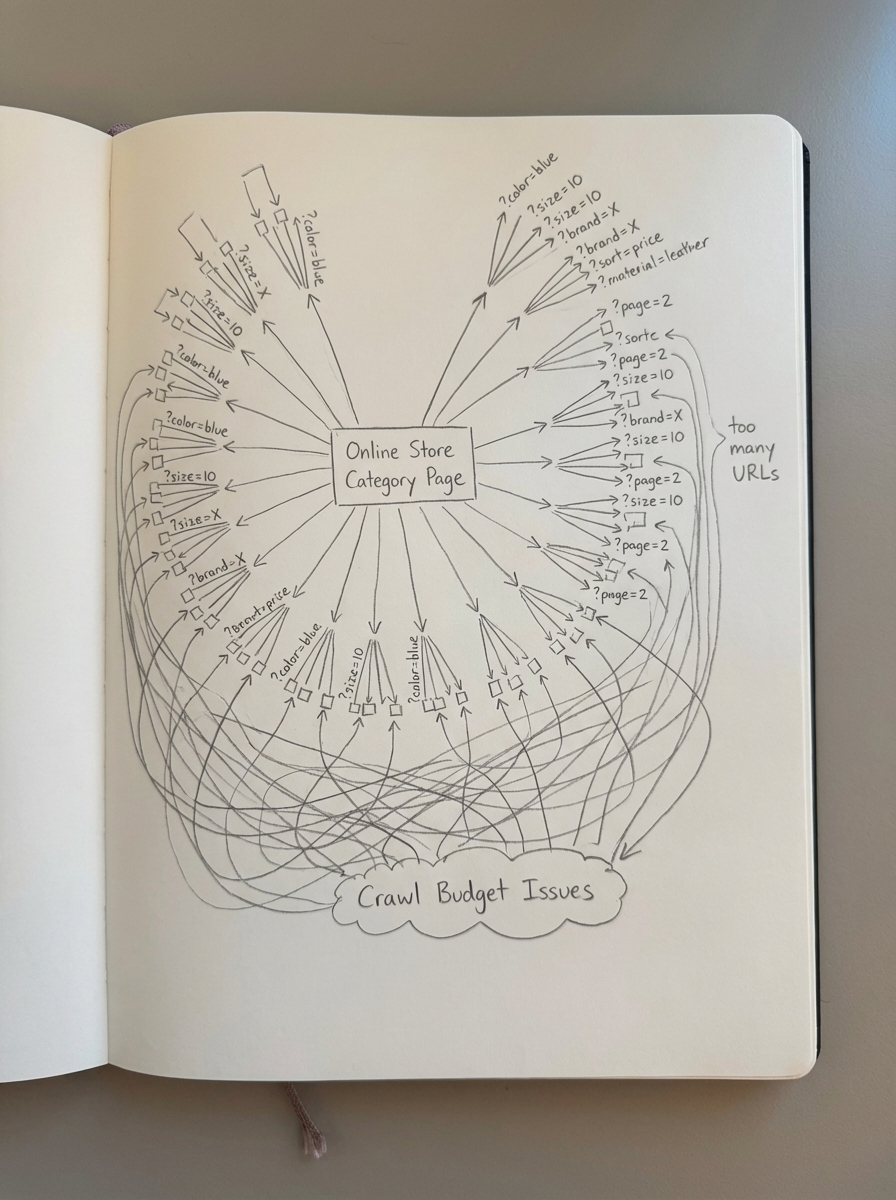 ?color=blue
?color=blue
?size=10
?size=10
?brand=X
?size=X
?brand=X
?sort=price
?material=leather
?size=10
?page=2
?sorte
?color=blue
?page=2
?size=10
?brand=X
?color=blue
too
many
URLs
Online Store
Category Page
?size=10
?page=2
?size=10
?size=10
?size=X
?page=2
?brand=X
?page=2
?color=blue
?size=10
?color=blue
Crawl Budget Issues